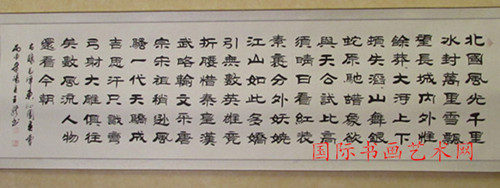 北國風光千里
冰封萬里雪飄
望長城内外惟
餘莽大河上下
頓失滔山舞銀
蛇原馳蠟象欲
與天公試比高
須晴日看紅裝
素裹分外妖嬈
江山如此多嬌
引無數英雄競
折腰惜秦皇漢
武略輸文采唐
宗宋祖稍遜風
騷一代天驕成
吉思汗只識彎
弓射大雕俱往
矣數風流人物
還看今朝
毛澤東
国际书画艺术网